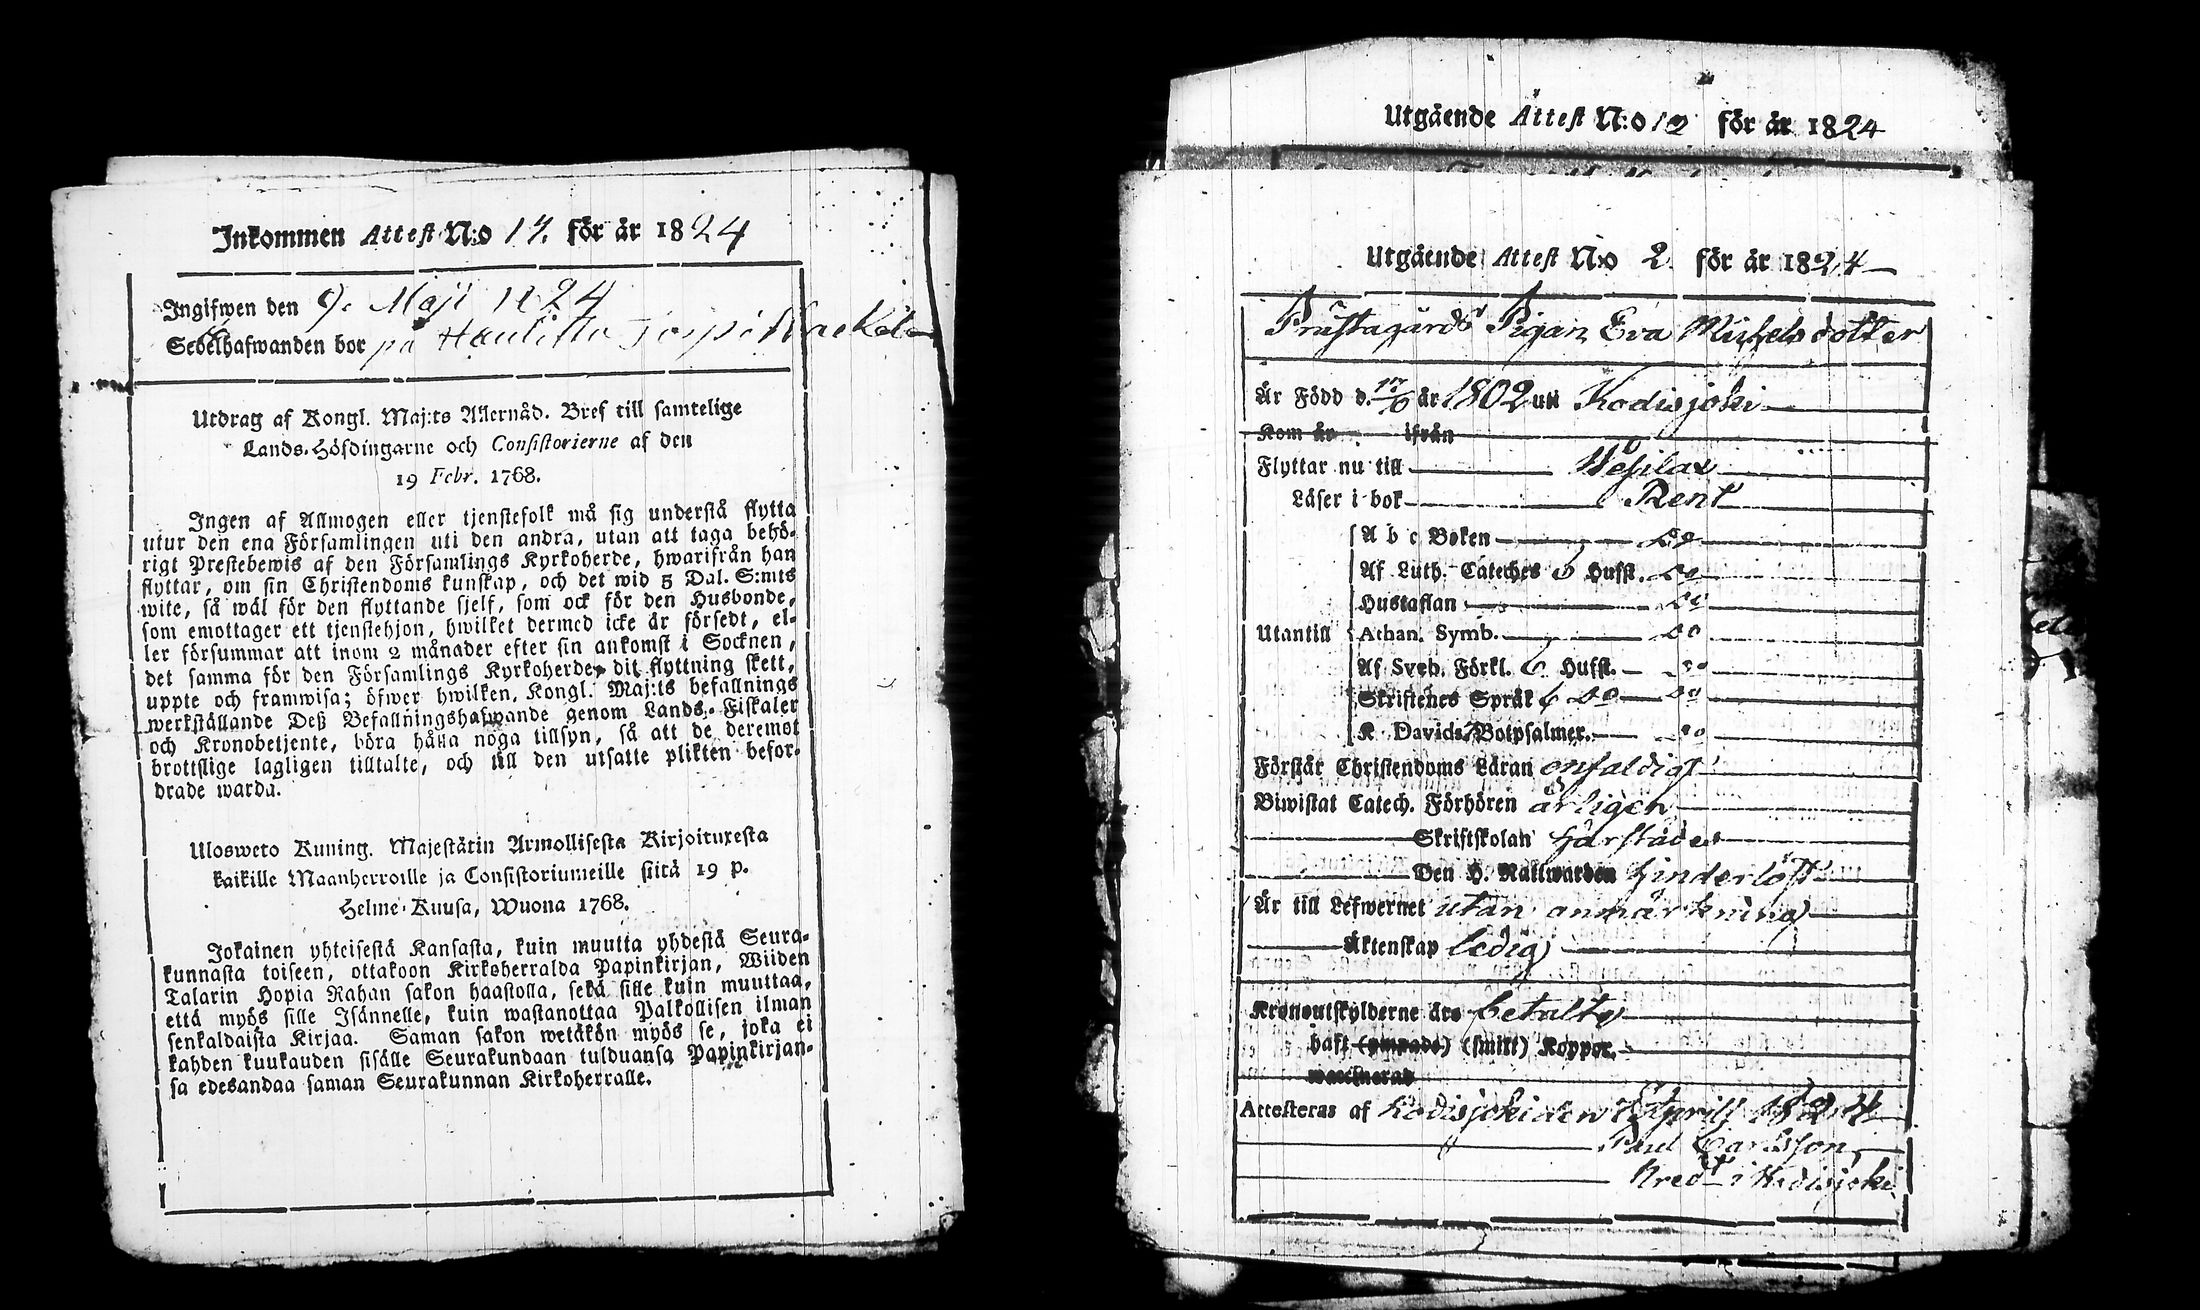 Inkommen Attest N:o 17. för år 1824
Ingifwen den 9. Maji 1824
Sedelhafwanden bor på
Utdrag af Kongl. Maj:ts Allernåd. Bref till samtelige
Lands-Höfdingarne och Consistorierne af den
19 Febr. 1768.
Ingen af Allmogen eller tjenstefolk må sig understå flytta
utur den ena Församlingen uti den andra, utan att taga behö-
rigt Prestebewis af den Församlings Kyrkoherde, hwarifrån han
flyttar, om sin Christendoms kunskap, och det wid 5 Dal. S:mts
wite, så wäl för den flyttande sjelf, som ock för den Husbonde,
som emottager ett tjenstehjon, hwilket dermed icke är försedt, el-
ler försummar att inom 2 månader efter sin ankomst i Socknen,
det samma för den Församlings Kyrkoherde, dit flyttning skett,
uppte och framwisa; öfwer hwilken, Kongl. Maj:ts befallnings
werkställande Deß Befallningshafwande genom Lands-Fiskaler
och Kronobetjente, böra hålla noga tillsyn, så att de deremot
brottslige lagligen tilltalte, och till den utsatte plikten befor-
drade warda.
Ulosweto Kuning. Majestätin Armollisesta Kirjoituxesta
kaikille Maanherroille ja Consistoriumeille siitä 19 p.
Helme-Kuusa, Wuona 1768.
Jokainen yhteisestä Kansasta, kuin muutta yhdestä Seura-
kunnasta toiseen, ottakoon Kirkoherralda Papinkirjan, Wiiden
Talarin Hopia Rahan sakon haastolla, sekä sille kuin muuttaa,
että myös sille Isännelle, kuin wastanottaa Palkollisen ilman
senkaldaista Kirjaa. Saman sakon wetäkön myös se, joka ei
kahden kuukauden sisälle Seurakundaan tulduansa Papinkirjan-
sa edesandaa saman Seurakunnan Kirkoherralle.
Utgående Attest N:o 12 för år 1824
Utgående Attest N:o 2. för år 1824
Prästagårds Pigan Eva Michelsdotter
Är Född d. 17/6 år 1802 uti Kodisjoki
Kom år ifrån
Flyttar nu till Wesilax
Läser i bok Rent
A b c Boken do
Af Luth. Cateches 6 Hufst. do
Hustaflan do
Utantill Athan. Symb. do
Af Sveb. Förkl. 6 Hufst. do
Skriftenes Språk 6 do do
K Davids 7 Botpsalmer. do
Förstår Christendoms Läran enfaldigt
Biwistat Catech. Förhören årligen
Skriftskolan härstädes
Den H. Nattwarden hinderlöst
Är till Lefwernet utan anmärkning
Äktenskap ledig
Kronoutskylderne äro betalte
haft (ympade) (smitt) Koppor.
waccinerad
Attesteras af Kodisjoki den April 1824
Paul Carlsson
Pred. i Kodisjoki